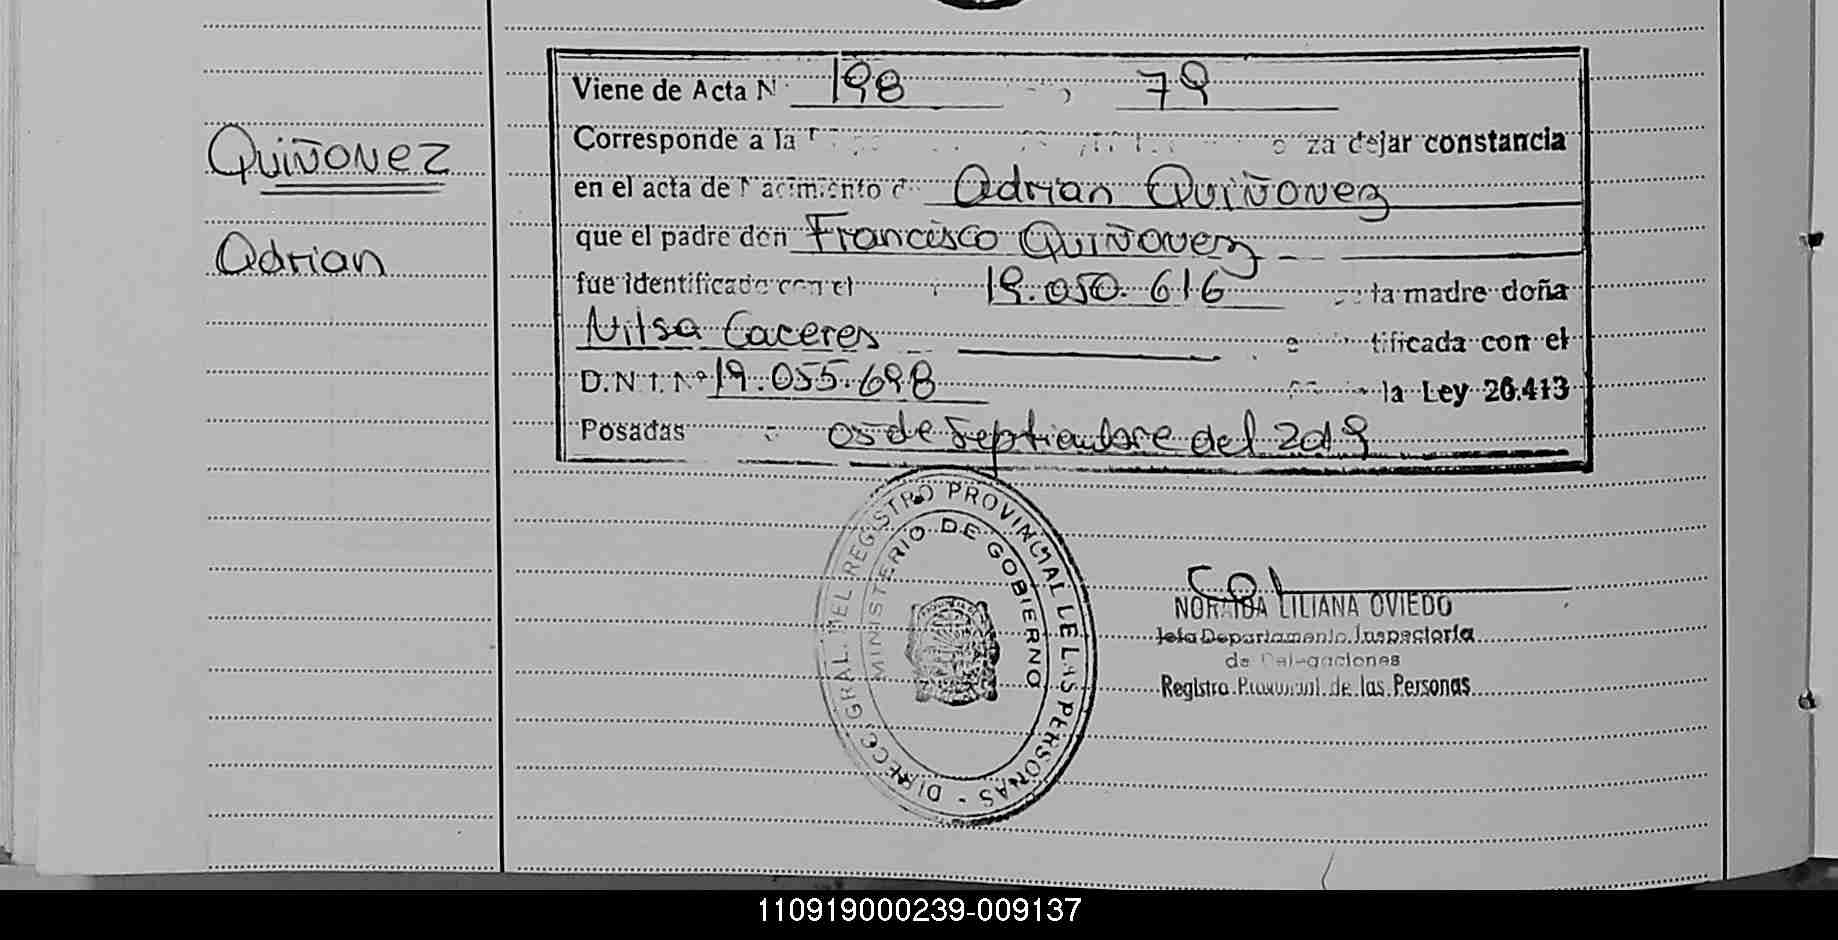 Quiñonez
Adrian
Viene de Acta N° 198 79
Corresponde a la dejar constancia
en el acta de Nacimiento de Adrian Quiñonez
que el padre don Francisco Quiñonez
fue identificado con el 19.050.616 la madre doña
Nilsa Caceres tificada con el
D.N.I. Nº 19.055.698 la Ley 26.413
Posadas 05 de Septiembre del 2019
DIRECC. GRAL. DEL REGISTRO PROVINCIAL DE LAS PERSONAS -
MINISTERIO DE GOBIERNO
NORAIDA LILIANA OVIEDO
Jefa Departamento Inspectoría
de Delegaciones
Registro Provincial de las Personas
110919000239-009137